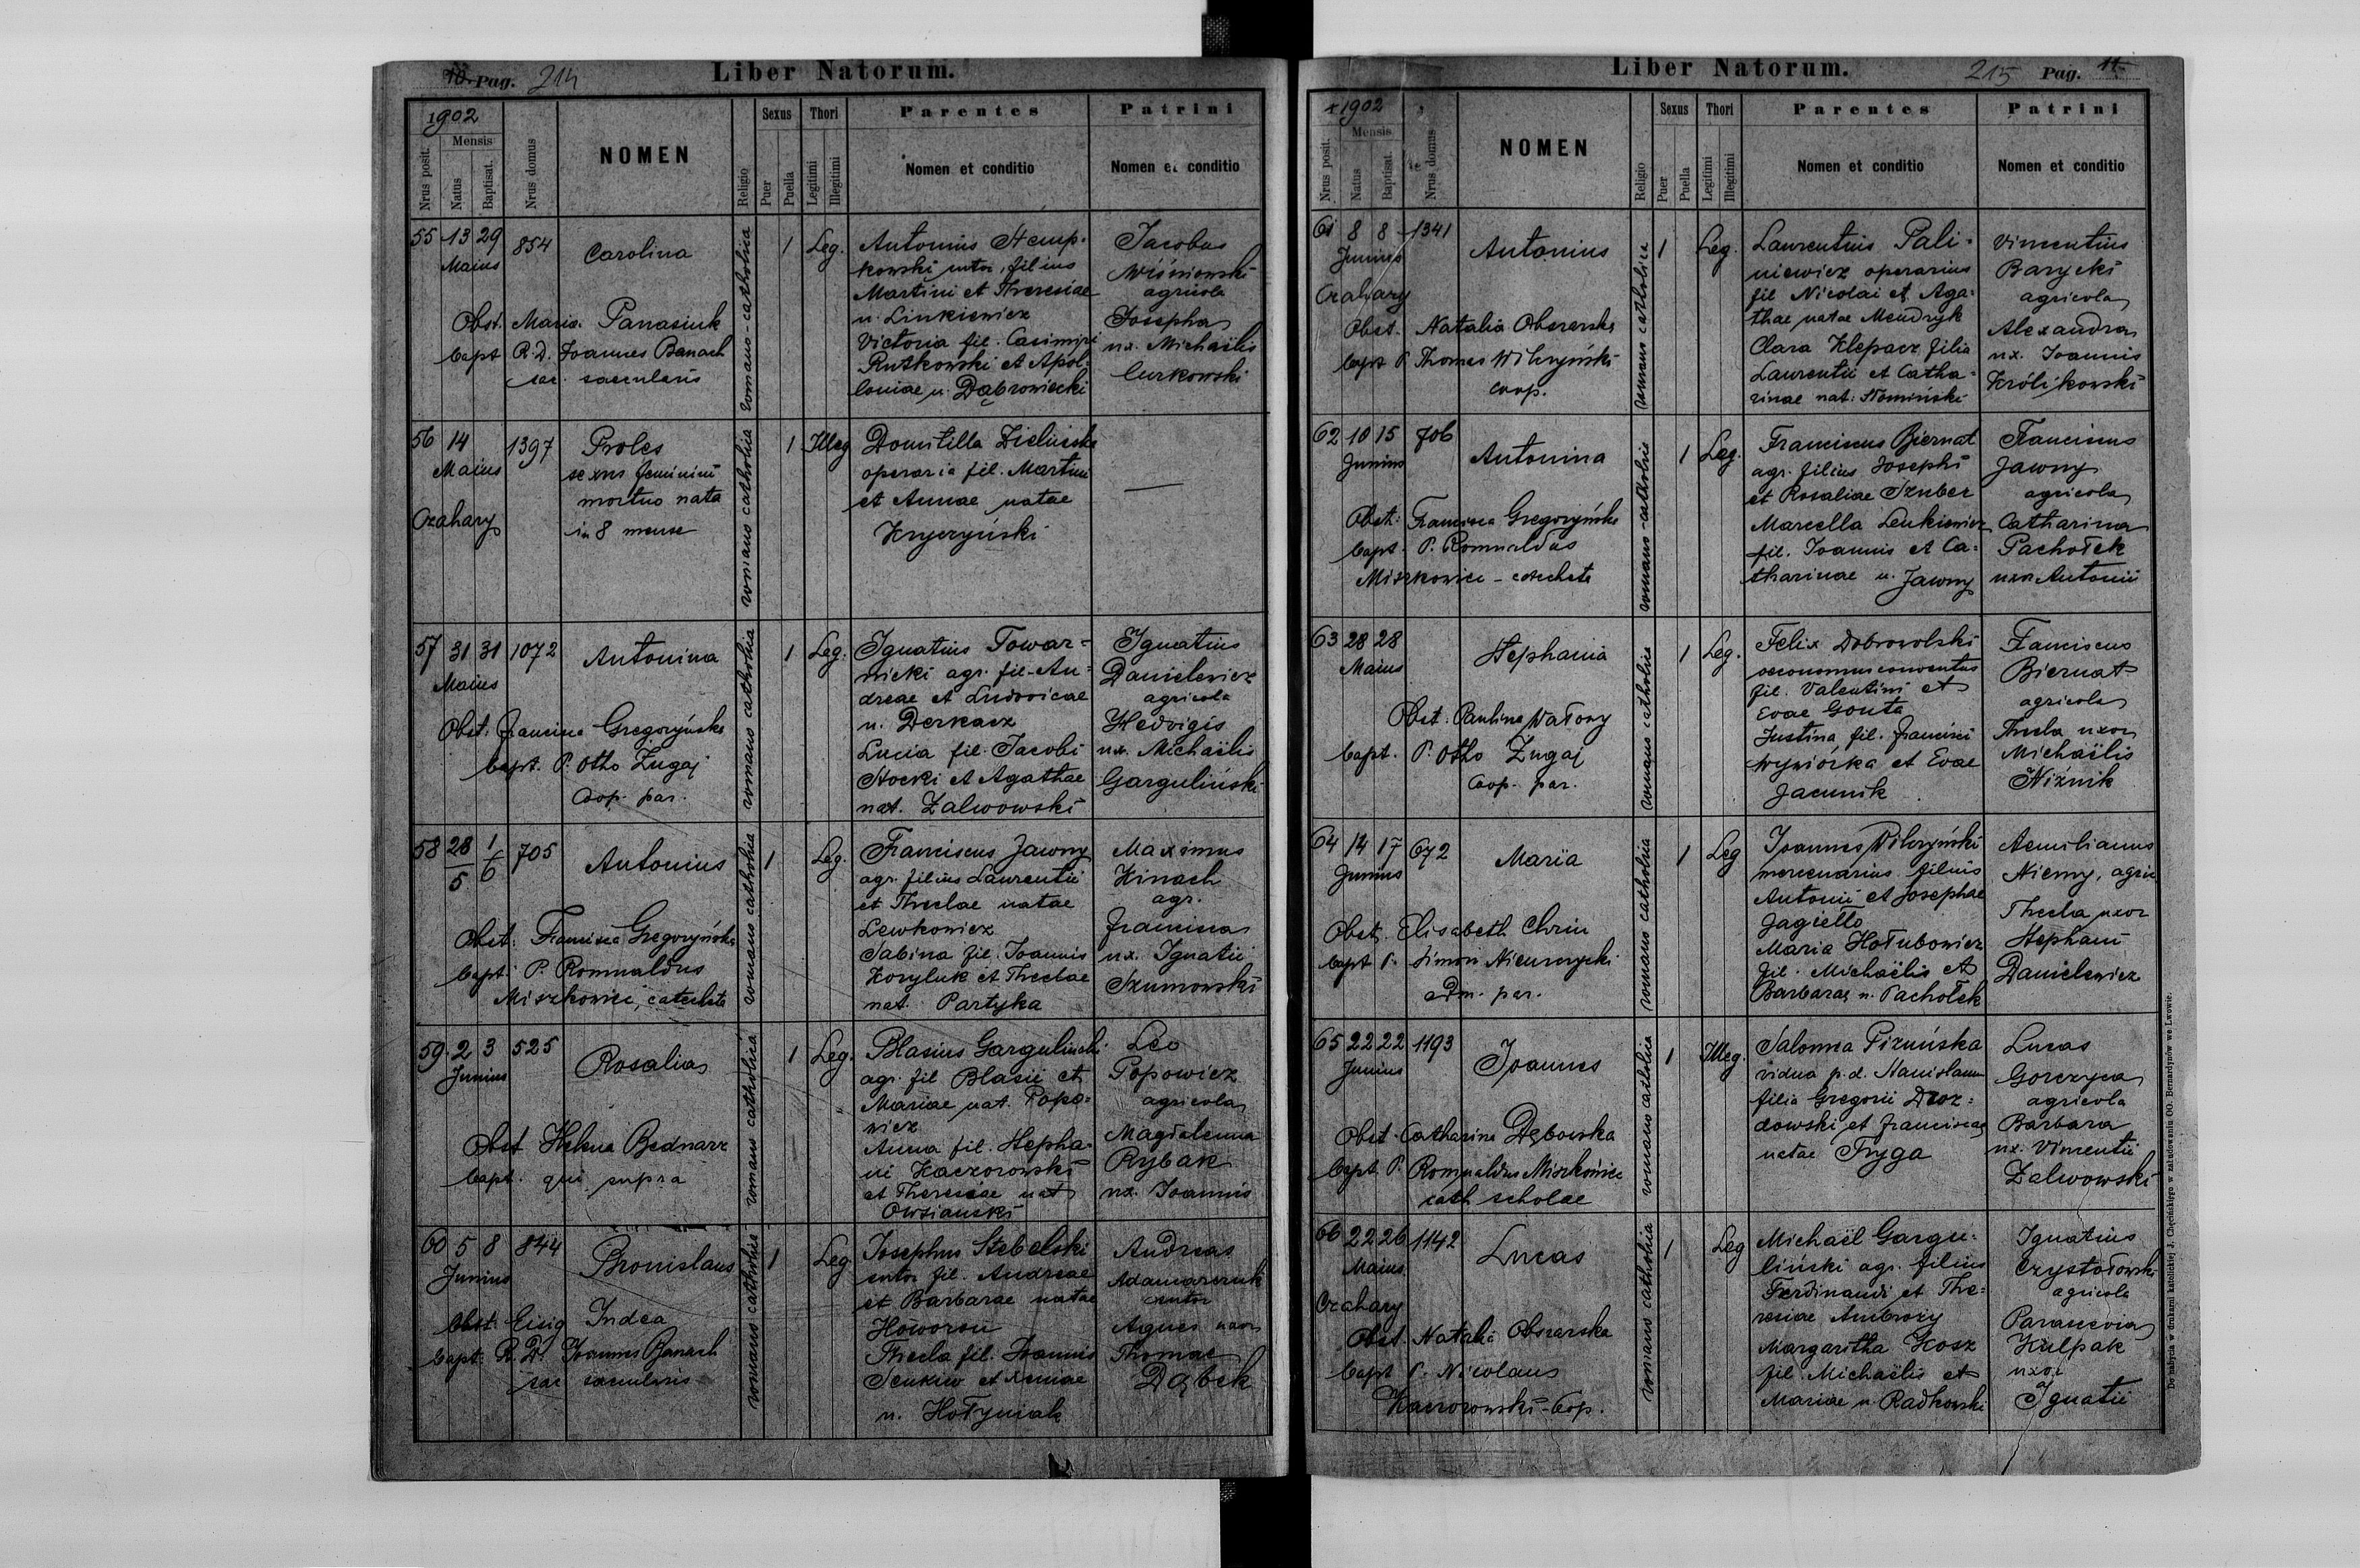 10. Pag. 214
Liber Natorum.
1902
Nrus posit.
Mensis
Natus
Baptisat.
Nrus domus
NOMEN
Religio
Sexus
Puer
Puella
Thori
Legitimi
Illegitimi
Parentes
Nomen et conditio
Patrini
Nomen et conditio
55 13 29 854
Maius
Carolina
Obst. Maria Panasiuk
bapt R. D. Joannes Banach
sac. saecularis
romano-catholica
1 Leg.
Antonius Stemp-
kowski sutor, filius
Martini et Theresiae
n. Linkiewicz
Victoria fil. Casimiri
Rutkowski et Apol-
loniae n. Dąbrowiecki
Jacobus
Wiśniowski
agricola
Josepha
ux. Michaëlis
Curkowski
56 14 1397
Maius
Czahary
Proles
sexus feminini
mortuo nata
in 8 mense
romano catholica
1 Illeg
Domitilla Zielińska
operaria fil. Martini
et Annae natae
Kryczyński
—
57 31 31 1072
Maius
Antonina
Obst. Francisca Gregoryńska
bapt. P. Otho Żugaj
Coop. par.
romano catholica
1 Leg.
Ignatius Towar-
nicki agr. fil. An-
dreae et Ludovicae
n. Derkacz
Lucia fil. Jacobi
Stocki et Agathae
nat. Zalwowski
Ignatius
Danielewicz
agricola
Hedvigis
ux. Michaëlis
Garguliński
58 28/5 1/6 705
Antonius
Obst: Francisca Gregoryńska
bapt. P. Romualdus
Miszkowicz, catecheta
romano catholica
1 Leg.
Franciscus Jawny
agr. filius Laurentii
et Theclae natae
Lewkowicz
Sabina fil. Joannis
Koryluk et Theclae
nat. Partyka
Maximus
Kinach
agr.
Francisca
ux. Ignatii
Szumowski
59. 2 3 525
Junius
Rosalia
Obst Helena Bednarz
bapt. qui supra
romano catholica
1 Leg.
Blasius Garguliński
agr. fil Blasii et
Mariae nat. Popo-
wicz
Anna fil. Stepha-
ni Kaczorowski
et Theresiae nat
Owsianski
Leo
Popowicz
agricola
Magdalenna
Rybak
ux. Joannis
60 5 8 844
Junius
Bronislaus
Obst. Eisig Judea
bapt. R. D. Joannes Banach
sac saecularis
romano catholica
1 Leg
Josephus Stebelski
sutor fil. Andreae
et Barbarae natae
Howoron
Thecla fil. Joannis
Senkiw et Annae
n. Hołyniak
Andreas
Adamarczuk
sutor
Agnes uxor
Thomae
Dąbek
Liber Natorum.
215 Pag. 11
1902
Nrus posit.
Mensis
Natus
Baptisat.
Nrus domus
NOMEN
Religio
Sexus
Puer
Puella
Thori
Legitimi
Illegitimi
Parentes
Nomen et conditio
Patrini
Nomen et conditio
61 8 8 1341
Junius
Czahary
Antonius
Obst. Natalia Obszarska
bapt P. Thomas Wilczyński
coop.
romano catholica
1 Leg.
Laurentius Pali-
niewicz operarius
fil Nicolai et Aga-
thae natae Mendryk
Clara Klepacz filia
Laurentii et Catha-
rinae nat: Słomiński
Vincentius
Barycki
agricola
Alexandra
ux. Joannis
Królikowski
62 10 15 706
Junius
Antonina
Obst: Francisca Gregoryńska
bapt. P. Romualdus
Miszkowicz - catecheta
romano-catholica
1 Leg.
Franciscus Biernat
agr. filius Josephi
et Rosaliae Szuber
Marcella Lenkiewicz
fil. Joannis et Ca-
tharinae n. Jawny
Franciscus
Jawny
agricola
Catharina
Pachołek
uxor Antonii
63 28 28
Maius
Stephania
Obst. Paulina Watowy
bapt. P. Otho Żugaj
Coop. par.
romano catholica
1 Leg.
Felix Dobrowolski
oeconomus conventus
fil. Valentini et
Evae Gonta
Justina fil. Francisci
Wywiórka et Evae
Jacunik
Franciscus
Biernat
agricola
Thecla uxor
Michaëlis
Niżnik
64 14 17 672
Junius
Maria
Obst. Elisabeth Chrin
bapt P. Simon Niemczycki
adm. par.
romano catholica
1 Leg
Joannes Wilczyński
mercenarius filius
Antonii et Josephae
Jagiełło
Maria Hołubowicz
fil. Michaëlis et
Barbarae n. Pachołek
Aemilianus
Niemy, agric
Thecla uxor
Stephani
Danielewicz
65 22 22 1193
Junius
Joannes
Obst. Catharina Dębowska
bapt P. Romualdus Miszkowicz
cath scholae
romano catholica
1 Illeg.
Salomea Pizuńska
vidua p. d. Stanislaum
filia Gregorii Droz-
dowski et Franciscae
natae Fryga
Lucas
Gorczyca
agricola
Barbara
ux. Vincentii
Zalwowski
66 22 26 1142
Maius
Czahary
Lucas
Obst. Natalia Obszarska
bapt P. Nicolaus
Kaczorowski - Cop.
romano catholica
1 Leg
Michaël Gargu-
liński agr. filius
Ferdinandi et The-
resiae Ambroży
Margaritha Kosz
fil Michaëlis et
Mariae n. Radkowski
Ignatius
Czystołowski
agricola
Parascevia
Kulpak
uxor
Ignatii
Do nabycia w drukarni katolickiej J. Chęcińskiego w zabudowaniu OO. Bernardynów we Lwowie.